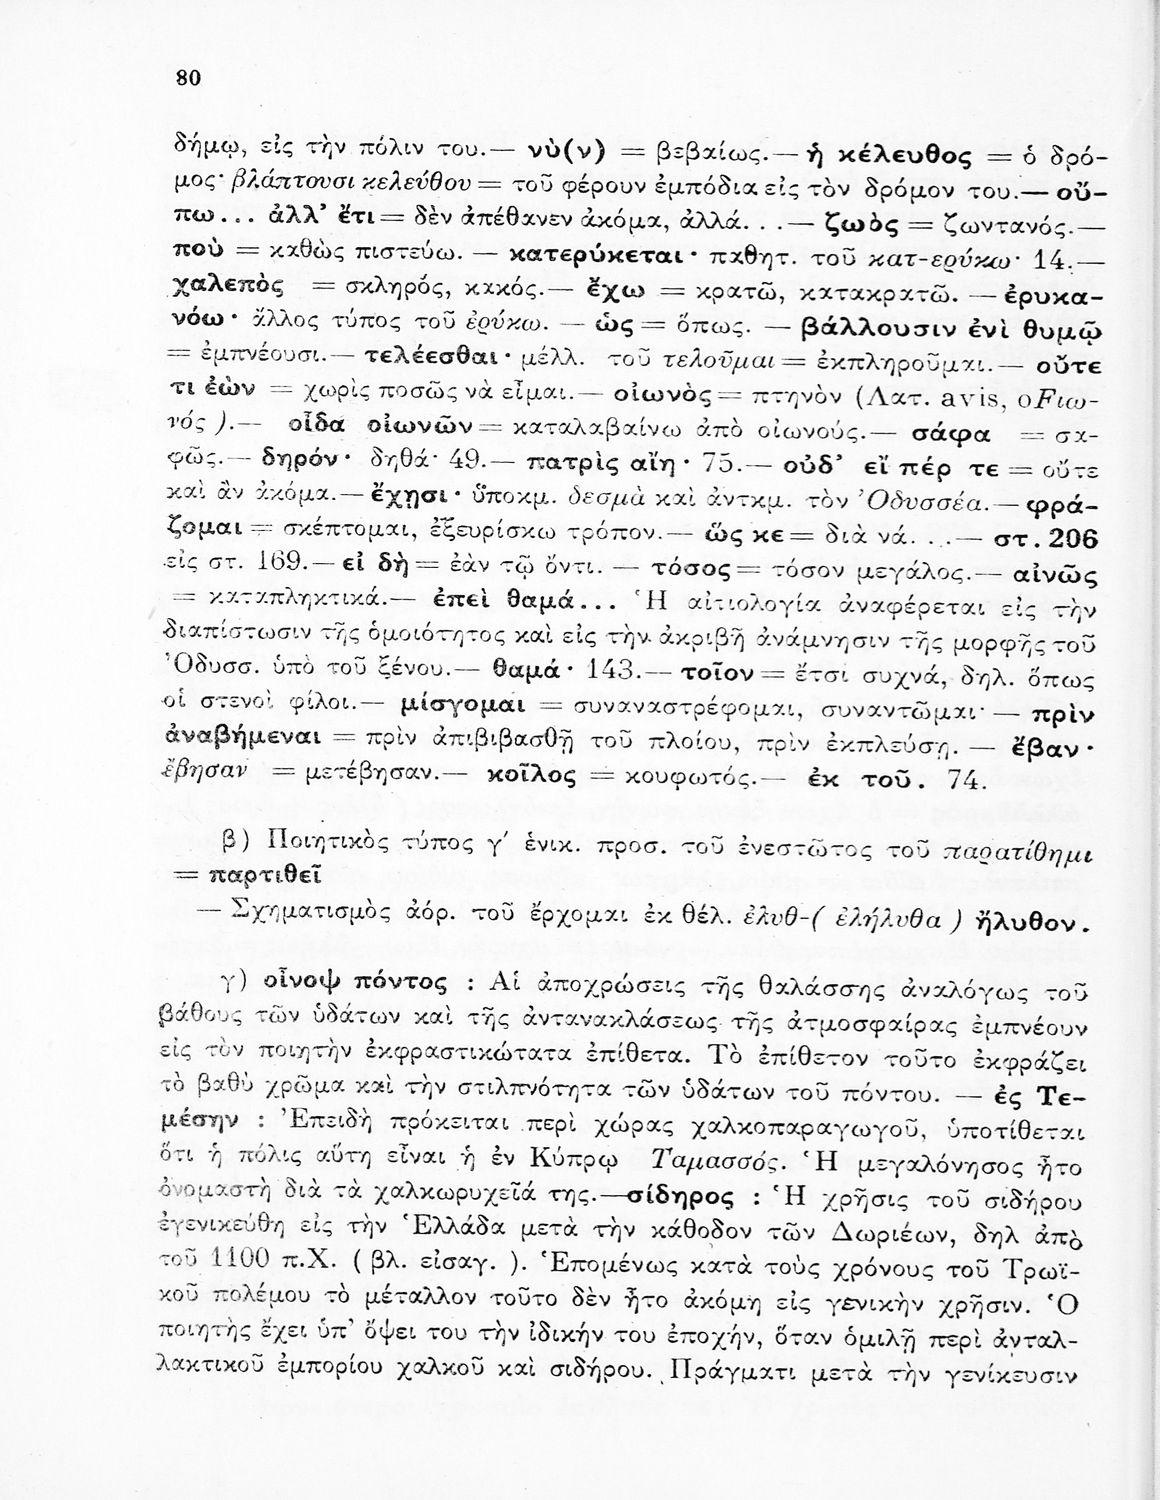 80
δήμῳ, εἰς τὴν πόλιν του.— νὺ(ν) = βεβαίως.— ἡ κέλευθος = ὁ δρό-
μος· βλάπτουσι κελεύθου = τοῦ φέρουν ἐμπόδια εἰς τὸν δρόμον του.— οὔ-
πω... ἀλλ’ ἔτι = δὲν ἀπέθανεν ἀκόμα, ἀλλά. . .— ζωὸς = ζωντανός.—
ποὺ = καθὼς πιστεύω. — κατερύκεται· παθητ. τοῦ κατ-ερύκω· 14.—
χαλεπὸς = σκληρός, κακός.— ἔχω = κρατῶ, κατακρατῶ. — ἐρυκα-
νόω· ἄλλος τύπος τοῦ ἐρύκω. — ὡς = ὅπως. — βάλλουσιν ἐνὶ θυμῷ
= ἐμπνέουσι.— τελέεσθαι· μέλλ. τοῦ τελοῦμαι = ἐκπληροῦμαι.— οὔτε
τι ἐὼν = χωρὶς ποσῶς νὰ εἶμαι.— οἰωνὸς = πτηνὸν (Λατ. avis, οFιω-
νός ).— οἶδα οἰωνῶν = καταλαβαίνω ἀπὸ οἰωνούς.— σάφα = σα-
φῶς.— δηρόν· δηθά· 49.— πατρὶς αἴη· 75.— οὐδ’ εἴ πέρ τε = οὔτε
καὶ ἂν ἀκόμα.— ἔχῃσι· ὑποκμ. δεσμὰ καὶ ἀντκμ. τὸν ’Οδυσσέα.— φρά-
ζομαι = σκέπτομαι, ἐξευρίσκω τρόπον.— ὥς κε = διὰ νά. . .— στ. 206
εἰς στ. 169.— εἰ δὴ = ἐὰν τῷ ὄντι. — τόσος = τόσον μεγάλος.— αἰνῶς
= καταπληκτικά.— ἐπεὶ θαμά... Ἡ αἰτιολογία ἀναφέρεται εἰς τὴν
διαπίστωσιν τῆς ὁμοιότητος καὶ εἰς τὴν ἀκριβῆ ἀνάμνησιν τῆς μορφῆς τοῦ
’Οδυσσ. ὑπὸ τοῦ ξένου.— θαμά· 143.— τοῖον = ἔτσι συχνά, δηλ. ὅπως
οἱ στενοὶ φίλοι.— μίσγομαι = συναναστρέφομαι, συναντῶμαι· — πρὶν
ἀναβήμεναι = πρὶν ἀπιβιβασθῇ τοῦ πλοίου, πρὶν ἐκπλεύσῃ. — ἔβαν·
ἔβησαν = μετέβησαν.— κοῖλος = κουφωτός.— ἐκ τοῦ. 74.
β) Ποιητικὸς τύπος γ′ ἑνικ. προσ. τοῦ ἐνεστῶτος τοῦ παρατίθημι
= παρτιθεῖ
— Σχηματισμὸς ἀόρ. τοῦ ἔρχομαι ἐκ θέλ. ἐλυθ-( ἐλήλυθα ) ἤλυθον.
γ) οἶνοψ πόντος : Αἱ ἀποχρώσεις τῆς θαλάσσης ἀναλόγως τοῦ
βάθους τῶν ὑδάτων καὶ τῆς ἀντανακλάσεως τῆς ἀτμοσφαίρας ἐμπνέουν
εἰς τὸν ποιητὴν ἐκφραστικώτατα ἐπίθετα. Τὸ ἐπίθετον τοῦτο ἐκφράζει
τὸ βαθὺ χρῶμα καὶ τὴν στιλπνότητα τῶν ὑδάτων τοῦ πόντου. — ἐς Τε-
μέσην : ’Επειδὴ πρόκειται περὶ χώρας χαλκοπαραγωγοῦ, ὑποτίθεται
ὅτι ἡ πόλις αὕτη εἶναι ἡ ἐν Κύπρῳ Ταμασσός. Ἡ μεγαλόνησος ἦτο
ὀνομαστὴ διὰ τὰ χαλκωρυχεῖά της.—σίδηρος : Ἡ χρῆσις τοῦ σιδήρου
ἐγενικεύθη εἰς τὴν Ἑλλάδα μετὰ τὴν κάθοδον τῶν Δωριέων, δηλ ἀπὸ
τοῦ 1100 π.Χ. ( βλ. εἰσαγ. ). Ἑπομένως κατὰ τοὺς χρόνους τοῦ Τρωϊ-
κοῦ πολέμου τὸ μέταλλον τοῦτο δὲν ἦτο ἀκόμη εἰς γενικὴν χρῆσιν. Ὁ
ποιητὴς ἔχει ὑπ’ ὄψει του τὴν ἰδικήν του ἐποχήν, ὅταν ὁμιλῇ περὶ ἀνταλ-
λακτικοῦ ἐμπορίου χαλκοῦ καὶ σιδήρου. Πράγματι μετὰ τὴν γενίκευσιν